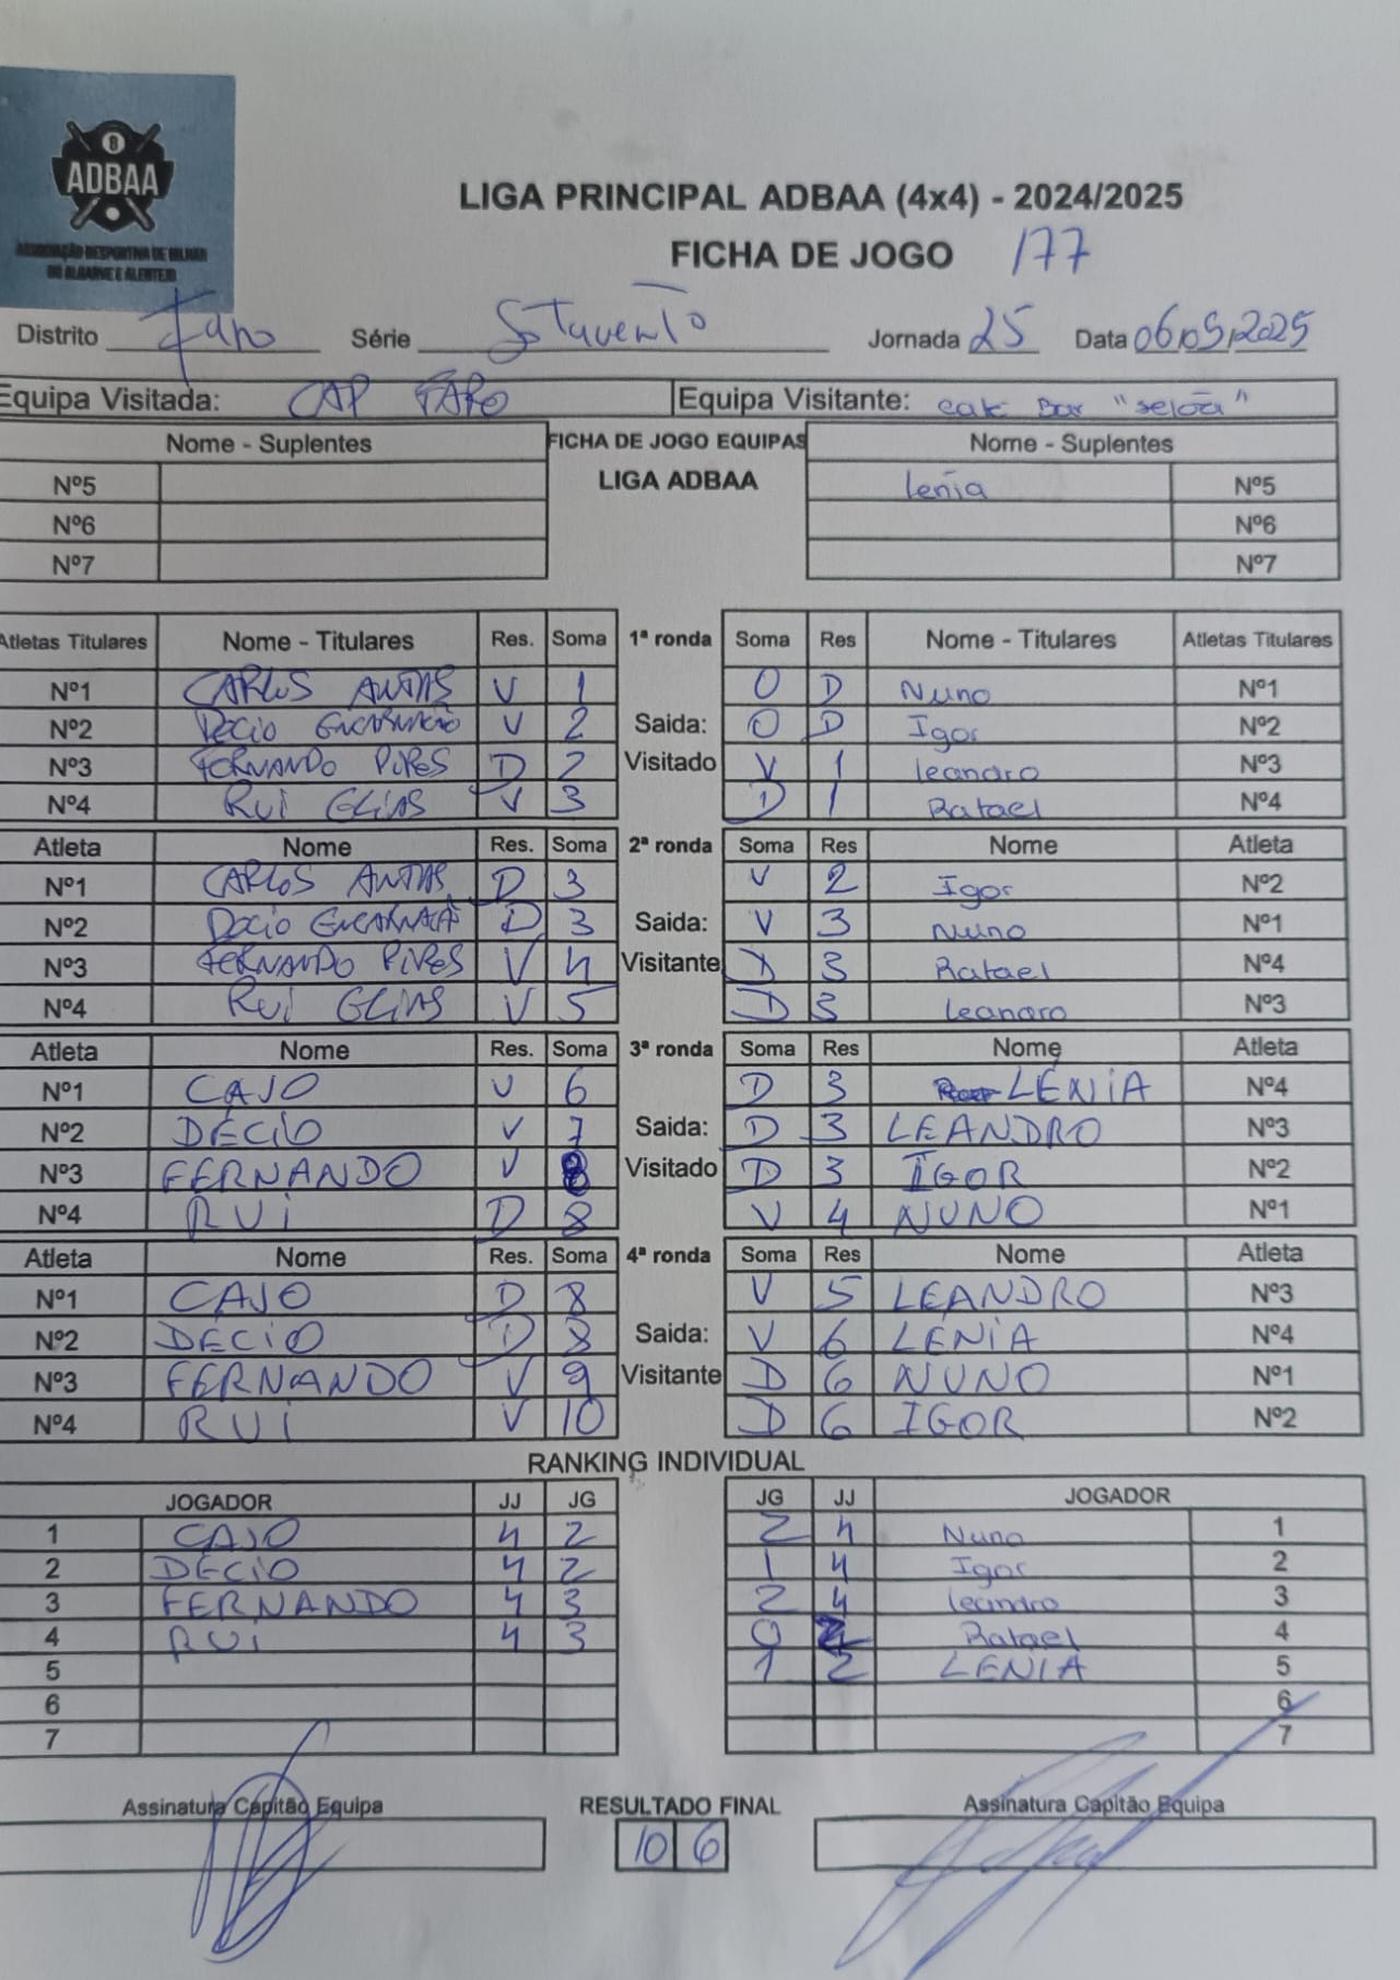 8
ADBAA
ASSOCIAÇÃO DESPORTIVA DE BILHAR
DO ALGARVE E ALENTEJO
LIGA PRINCIPAL ADBAA (4x4) - 2024/2025
FICHA DE JOGO 177
Distrito Faro Série Sotavento Jornada 25 Data 06/05/2025
Equipa Visitada: CAP FARO Equipa Visitante: Bar "
Nome - Suplentes FICHA DE JOGO EQUIPAS Nome - Suplentes
Nº5 LIGA ADBAA lenia Nº5
Nº6 Nº6
Nº7 Nº7
Atletas Titulares Nome - Titulares Res. Soma 1ª ronda Soma Res Nome - Titulares Atletas Titulares
Nº1 CARLOS ANTAS V 1 0 D Nuno Nº1
Nº2 Decio Encarnação V 2 Saida: 0 D Igor Nº2
Nº3 FERNANDO PIRES D 2 Visitado V 1 leandro Nº3
Nº4 Rui ELIAS V 3 D 1 Rafael Nº4
Atleta Nome Res. Soma 2ª ronda Soma Res Nome Atleta
Nº1 CARLOS ANTAS D 3 V 2 Igor Nº2
Nº2 Decio D 3 Saida: V 3 Nuno Nº1
Nº3 FERNANDO PIRES V 4 Visitante D 3 Rafael Nº4
Nº4 Rui ELIAS V 5 D 3 leandro Nº3
Atleta Nome Res. Soma 3ª ronda Soma Res Nome Atleta
Nº1 CAJO V 6 D 3 LÉNIA Nº4
Nº2 DÉCIO V 7 Saida: D 3 LEANDRO Nº3
Nº3 FERNANDO V 8 Visitado D 3 IGOR Nº2
Nº4 RUI D 8 V 4 NUNO Nº1
Atleta Nome Res. Soma 4ª ronda Soma Res Nome Atleta
Nº1 CAJO D 8 V 5 LEANDRO Nº3
Nº2 DÉCIO D 8 Saida: V 6 LÉNIA Nº4
Nº3 FERNANDO V 9 Visitante D 6 NUNO Nº1
Nº4 RUI V 10 D 6 IGOR Nº2
RANKING INDIVIDUAL
JOGADOR JJ JG JG JJ JOGADOR
1 CAJO 4 2 2 4 Nuno 1
2 DÉCIO 4 2 1 4 Igor 2
3 FERNANDO 4 3 2 4 leandro 3
4 RUI 4 3 0 2 Rafael 4
5 1 2 LÉNIA 5
6 6
7 7
Assinatura Capitão Equipa RESULTADO FINAL Assinatura Capitão Equipa
10 6